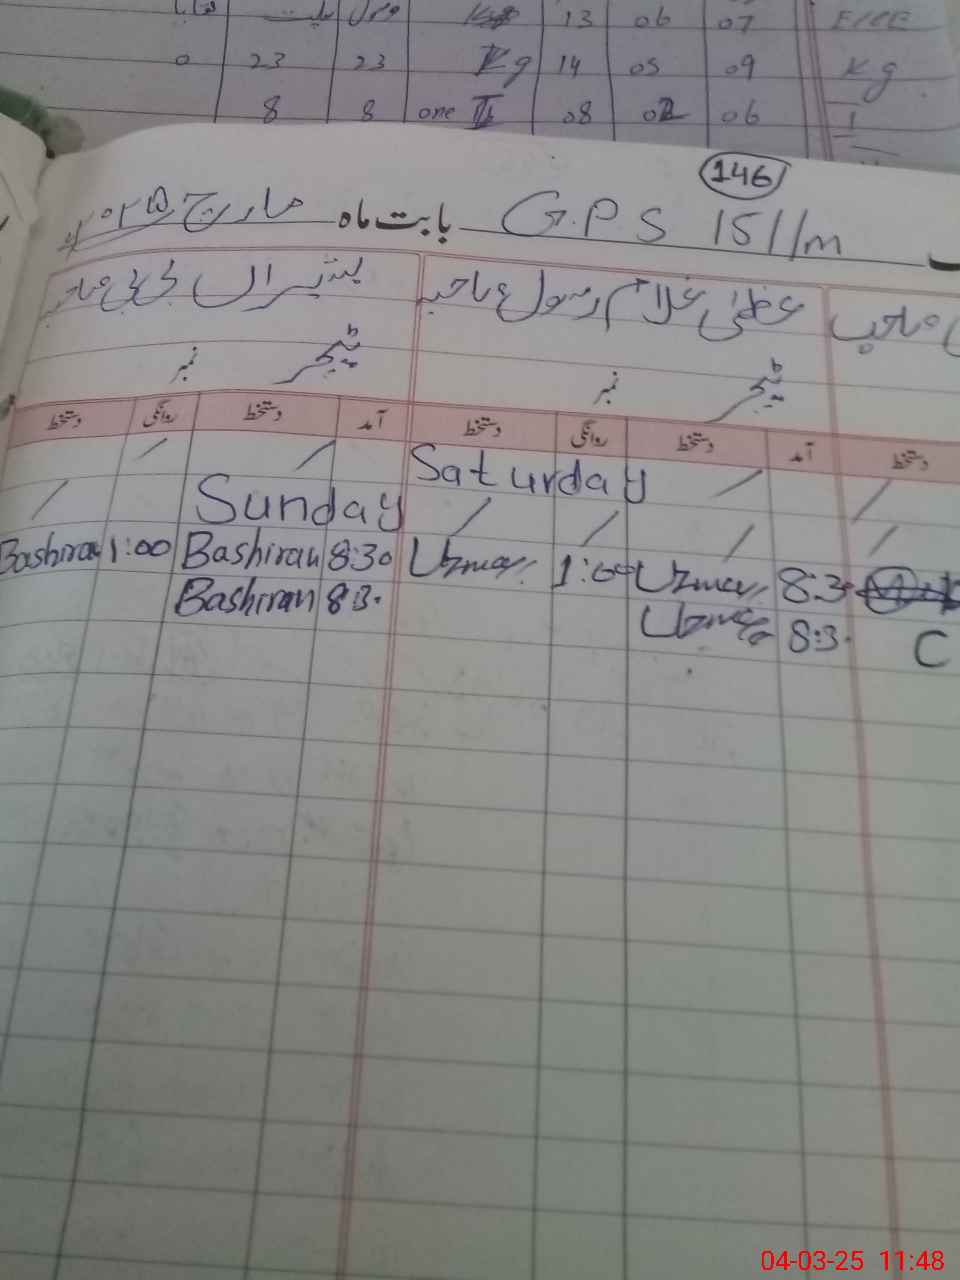 13 06 07 ECCE
0 23 23 Kg 14 05 09 Kg
8 8 one 08 02 06 1
146
G.P.S 15//m بابت ماہ مارچ ۲۰۲۵
صاحب عظمیٰ غلام رسول صاحبہ بشیراں بی بی صاحبہ
ٹیچر نمبر ٹیچر نمبر
دستخط آمد دستخط روانگی دستخط آمد دستخط روانگی دستخط
Saturday
Sunday
Bashiran 1:00 Bashiran 8:30 Uzma 1:00 Uzma 8:30
Bashiran 8:3. Uzma 8:3. C
04-03-25 11:48